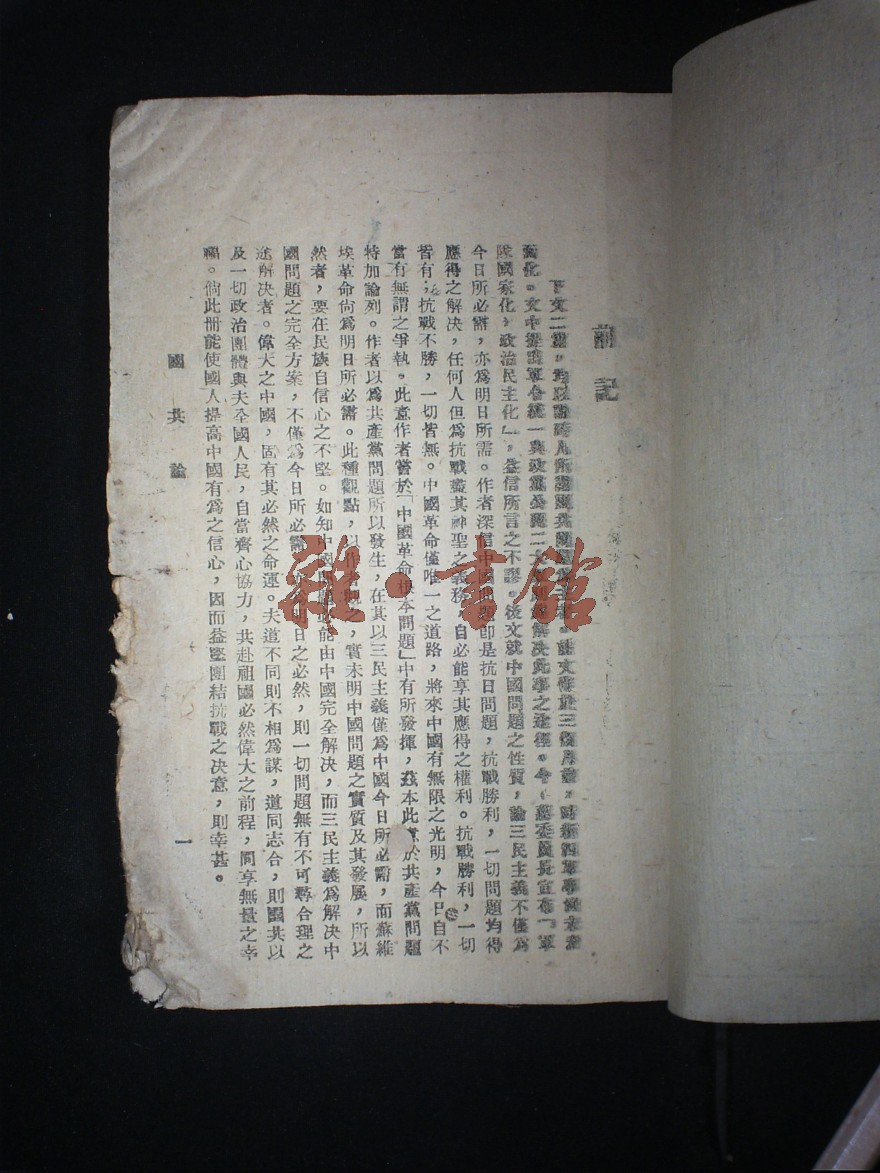 前記
下文二篇，
變化。文中提及軍令統一與政黨公開二大解決此事之途徑。今蔣委員長宣布「軍
隊國家化，政治民主化」，益信所言之不謬。後文就中國問題之性質，論三民主義不僅為
今日所必需，亦為明日所需。作者深信中國問題卽是抗日問題，抗戰勝利，一切問題均得
應得之解決，任何人但為抗戰盡其神聖之義務，自必能享其應得之權利。抗戰勝利，一切
皆有，抗戰不勝，一切皆無。中國革命僅唯一之道路，將來中國有無限之光明，今日自不
當有無謂之爭執。此意作者嘗於「中國革命根本問題」中有所發揮，茲本此意於共產黨問題
特加論列。作者以為共產黨問題所以發生，在其以三民主義僅為中國今日所必需，而蘇維
埃革命尙為明日所必需。此種觀點，以作者觀之，實未明中國問題之實質及其發展，所以
然者，要在民族自信心之不堅。如知中國問題必能由中國完全解決，而三民主義為解決中
國問題之完全方案，不僅為今日所必需亦為明日之必然，則一切問題無有不可尋合理之
途解決者。偉大之中國，固有其必然之命運。夫道不同則不相為謀，道同志合，則國共以
及一切政治團體與夫全國人民，自當齊心協力，共赴祖國必然偉大之前程，同享無量之幸
福。倘此冊能使國人提高中國有為之信心，因而益堅團結抗戰之決意，則幸甚。
國共論
一
雜·書館